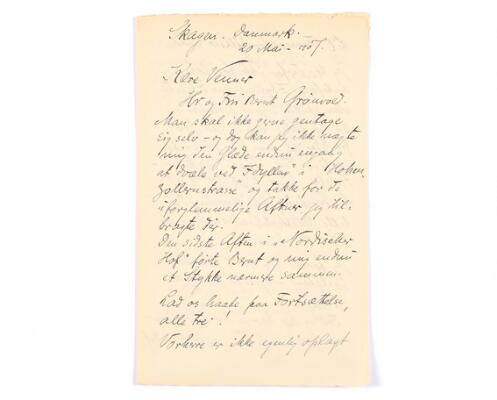 Skagen. Danmark.
20 Mai - 1907.
Kære Venner
Hr og Fru Bernt Grönvold.
Man skal ikke gerne gentage
sig selv - og dog kan jeg ikke nægte
mig den Glæde endnu engang
at dvæle ved "Idyllen" i "Hohen
zollernstrasse" og takke for de
uforglemmelige Aftner jeg til-
bragte der.
Den sidste Aften i "Nordischer
Hof" førte Bernt og mig endnu
et Stykke nærmere sammen.
Lad os haabe paa Fortsættelse,
alle tre!
Vorherre er ikke egenlig oplagt